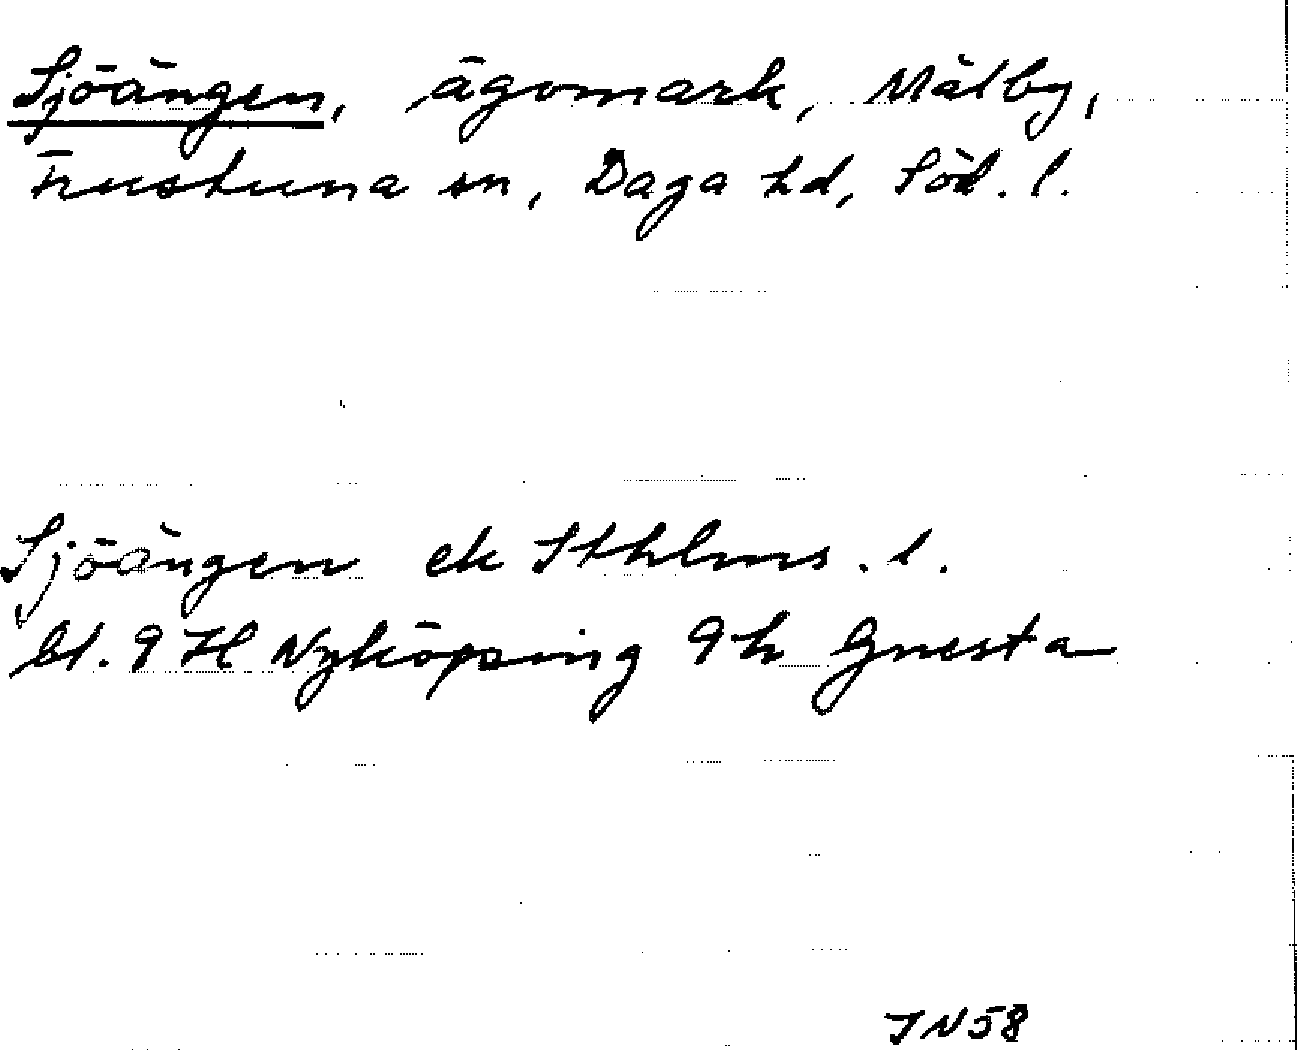 Sjöängen, ägomark, Målby,
Frustuna sn, Daga hd, Söd. l.
Sjöängen ek Sthlms. l.
bl. 9 H Nyköping 9h Gnesta
JN58